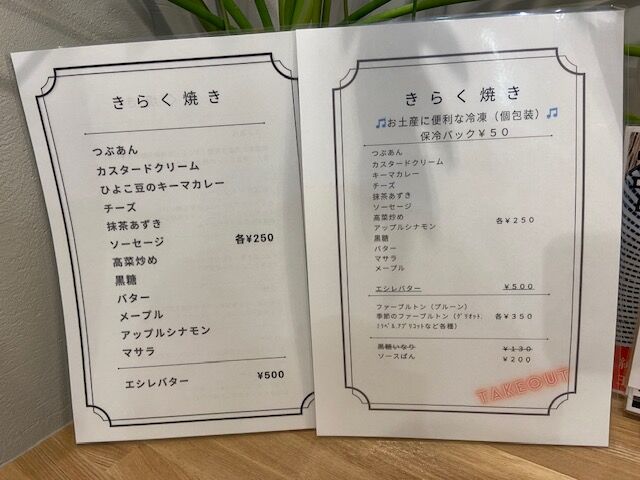 きらく焼き
つぶあん
カスタードクリーム
ひよこ豆のキーマカレー
チーズ
抹茶あずき
ソーセージ 各¥250
高菜炒め
黒糖
バター
メープル
アップルシナモン
マサラ
エシレバター ¥500
きらく焼き
🎵お土産に便利な冷凍（個包装）🎵
保冷バック¥50
つぶあん
カスタードクリーム
キーマカレー
チーズ
抹茶あずき
ソーセージ
高菜炒め 各¥250
アップルシナモン
黒糖
バター
マサラ
メープル
エシレバター ¥500
ファーブルトン（プルーン）
季節のファーブルトン（グリオット、 各¥350
ミラベル,アプリコットなど各種）
黒糖いなり ¥130
ソースぱん ¥200
TAKEOUT